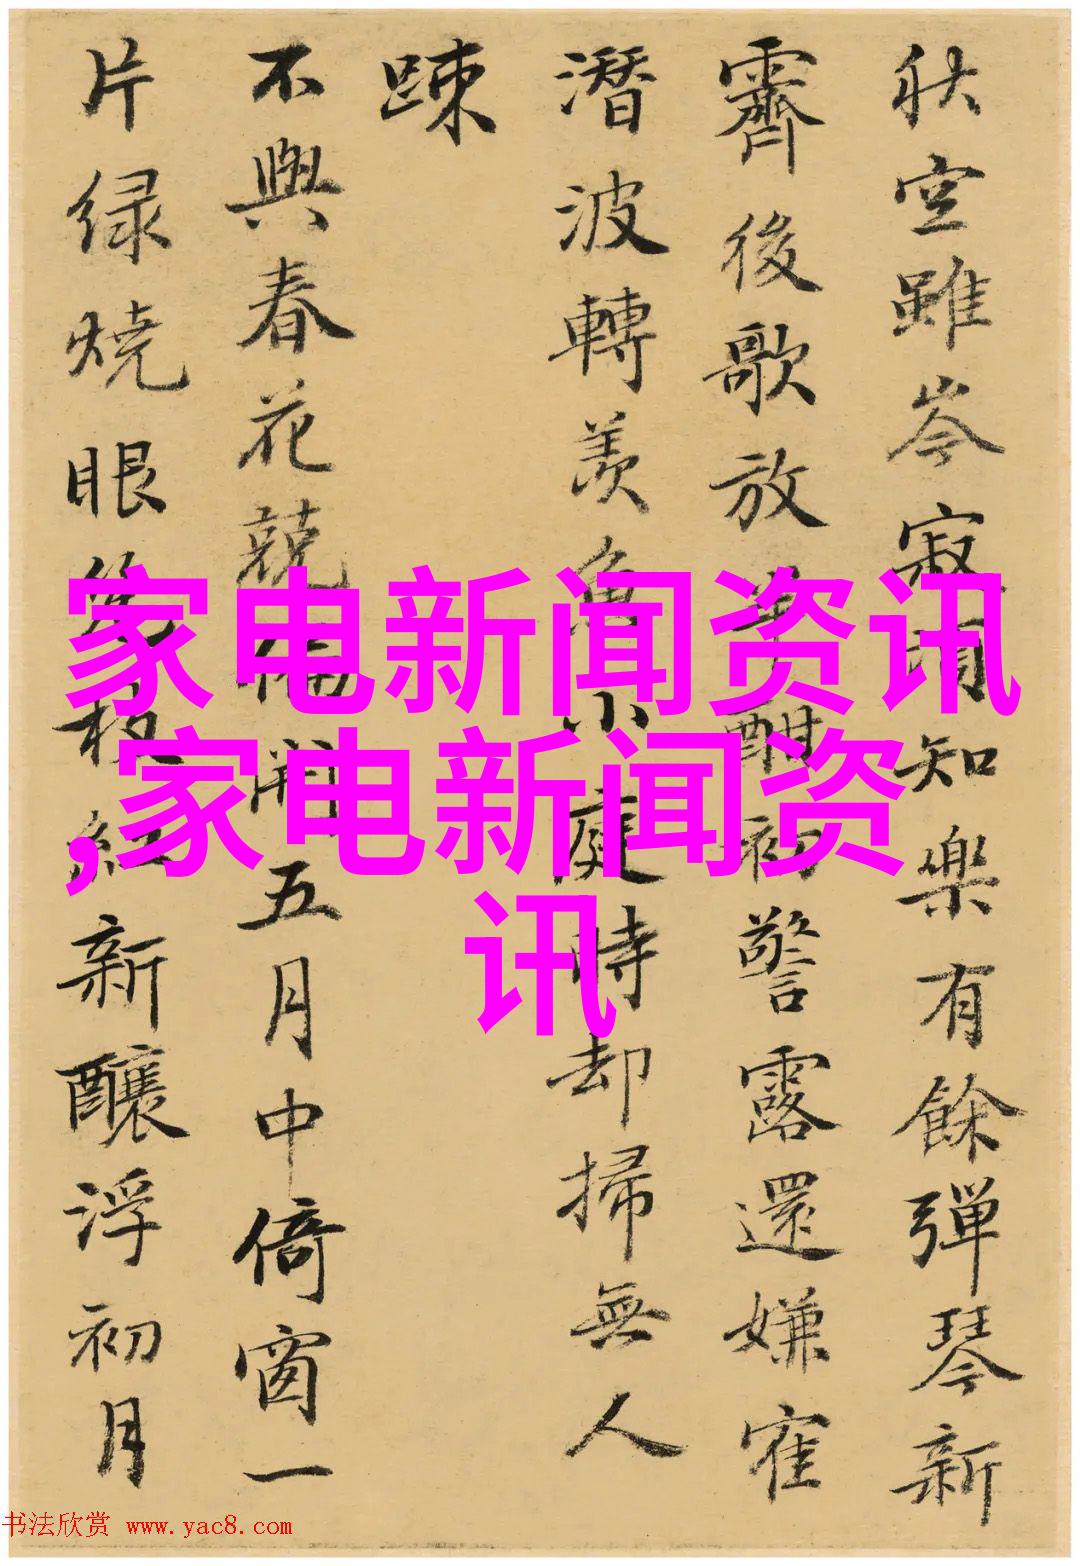 秋空雖岑寂頃知樂有餘彈琴新
霽後歌放酣初警露還嫌寉
潛波轉羨魚小庭時却掃無人
踈
不與春花競偏開五月中倚窗一
片绿燒眼幾枝紅新釀浮初月
家电新闻资讯
,家电新闻资
讯
书法欣赏 www.yac8.com